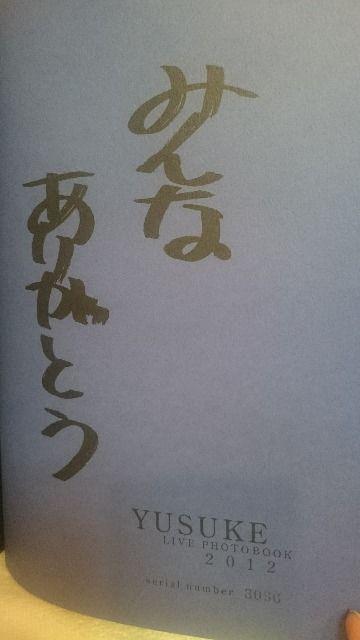 みんな
ありがとう
YUSUKE
LIVE PHOTOBOOK
2012
serial number 3036